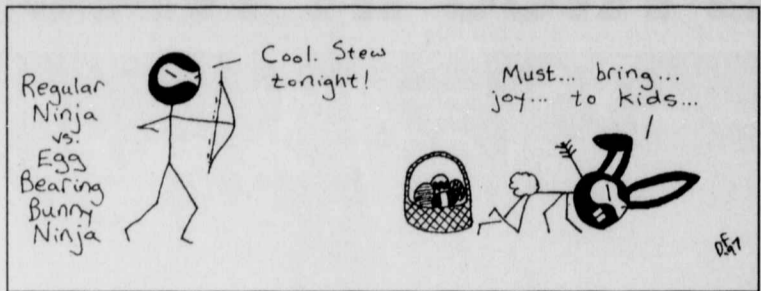 Regular
Ninja
vs.
Egg
Bearing
Bunny
Ninja
Cool. Stew
tonight!
Must... bring...
joy... to kids...